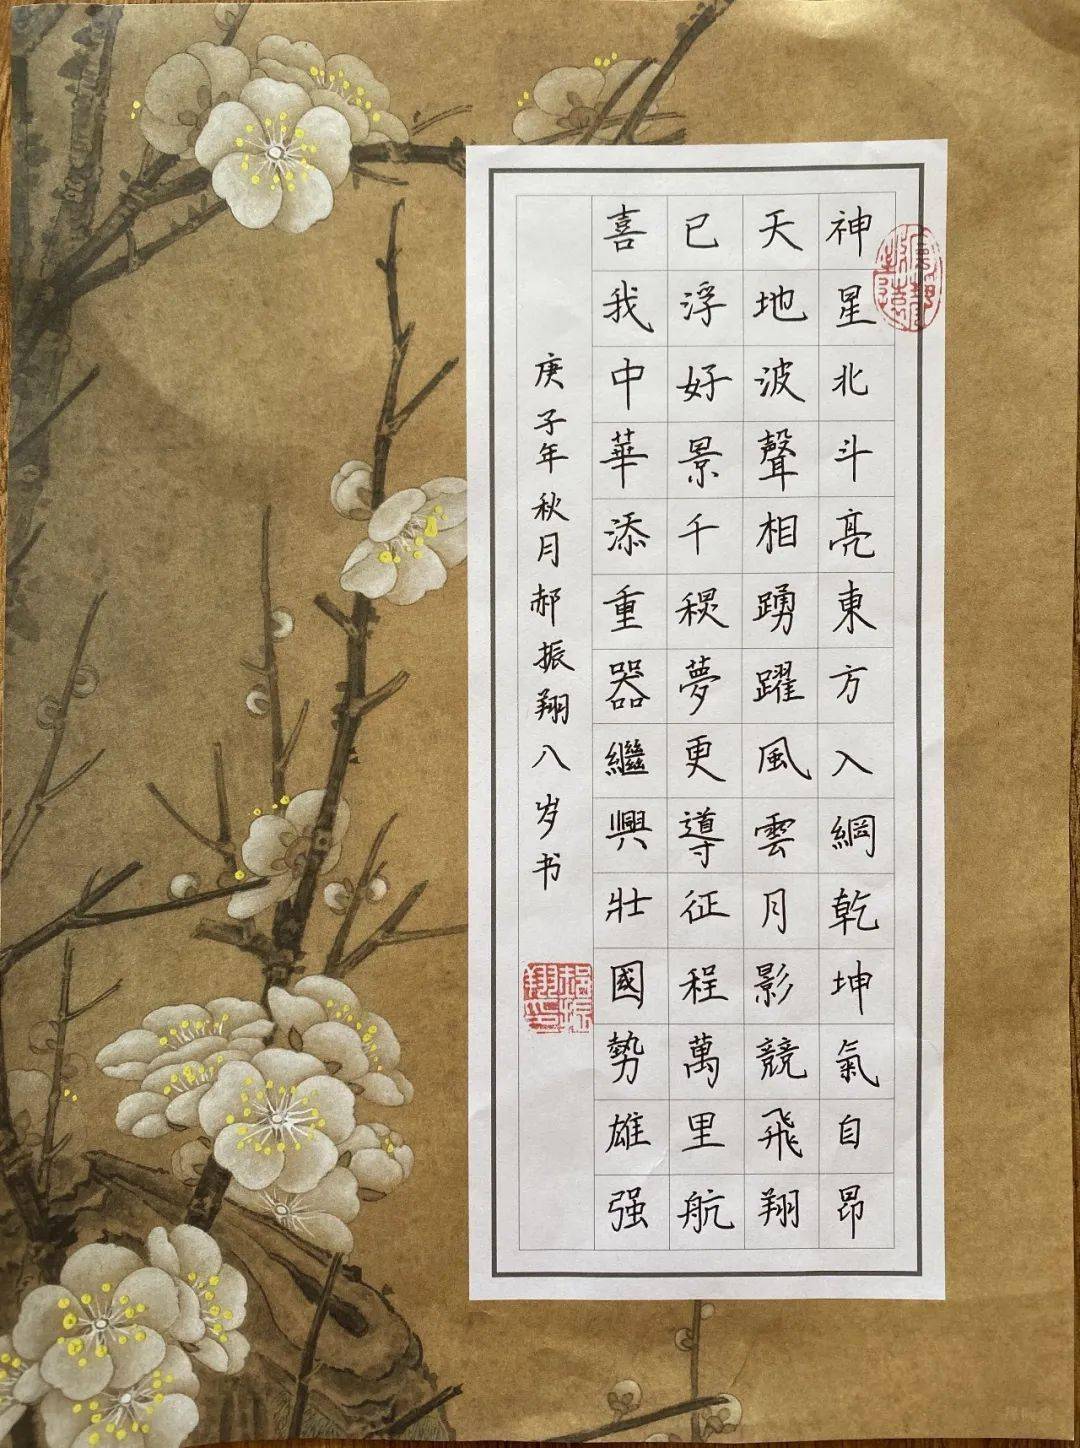 神星北斗亮東方入網乾坤氣自昂
天地波聲相踴躍風雲月影競飛翔
已浮好景千稷夢更導征程萬里航
喜我中華添重器繼興壯國勢雄强
庚子年秋月郝振翔八岁书
郝振翔印